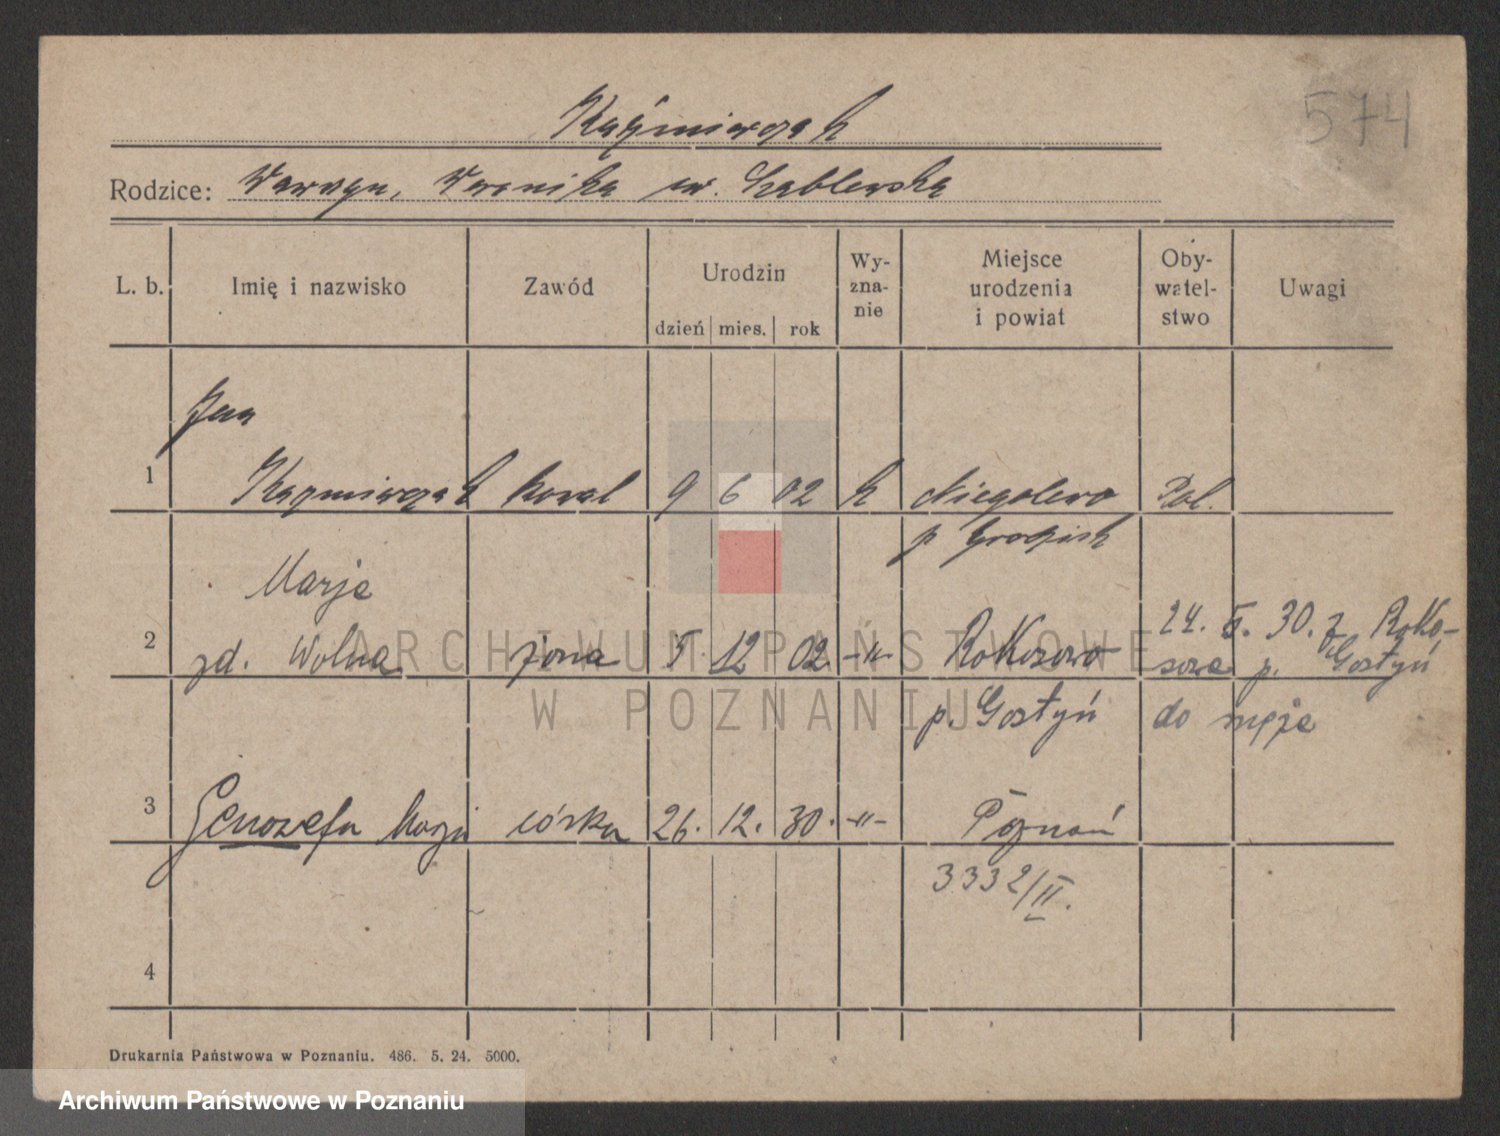 574
Kaźmierczak
Rodzice: Wawrzyn, Weronika ur. Szablewska
L. b. Imię i nazwisko Zawód Urodzin dzień mies. rok Wy-zna-nie Miejsce urodzenia i powiat Oby-watel-stwo Uwagi
Jan
1 Kaźmierczak kowal 9 6 02 k Niegolewo Pol.
p Grodzisk
Marja
24. 5. 30. z Roko-
2 zd. Wolna żona 5. 12 02. -"- Rokosowo sowa p. Gostyń
p. Gostyń do męża
3 Genowefa Marja córka 26. 12. 30. -"- Poznań
3332/II.
4
Drukarnia Państwowa w Poznaniu. 486. 5. 24. 5000.
ARCHIWUM PAŃSTWOWE
W POZNANIU
Archiwum Państwowe w Poznaniu